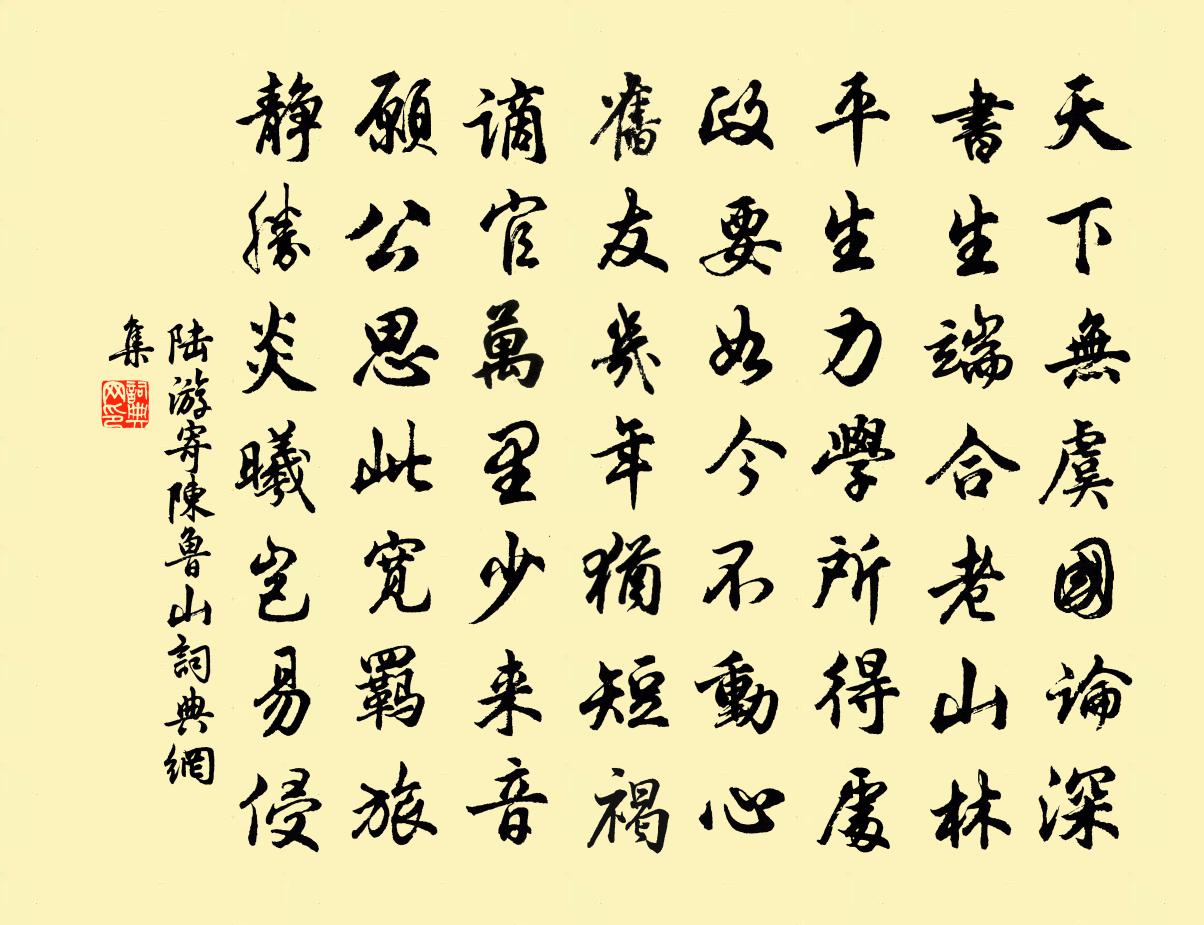 天下無虞國論深
書生端合老山林
平生力學所得處
政要如今不動心
舊友幾年猶短褐
謫官萬里少来音
願公思此寬羈旅
静勝炎曦豈易侵
陸游寄陳魯山詞典網
集
詞典网印